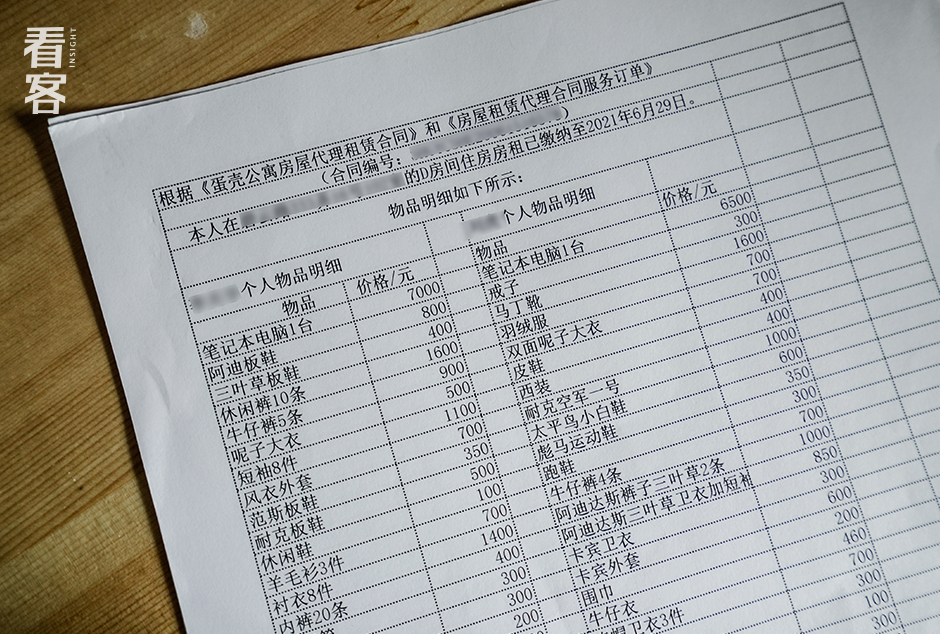 看客
INSIGHT
根据《蛋壳公寓房屋代理租赁合同》和《房屋租赁代理合同服务订单》
（合同编号：）
本人在的D房间住房房租已缴纳至2021年6月29日。
物品明细如下所示：
个人物品明细
物品 价格/元
笔记本电脑1台 7000
阿迪板鞋 800
三叶草板鞋 400
休闲裤10条 1600
牛仔裤5条 900
呢子大衣 500
短袖8件 1100
风衣外套 700
范斯板鞋 350
耐克板鞋 500
休闲鞋 100
羊毛衫3件 700
衬衣8件 1400
内裤20条 400
300
300
200
个人物品明细
物品 价格/元
笔记本电脑1台 6500
戒子 300
马丁靴 1600
羽绒服 700
双面呢子大衣 700
皮鞋 400
西装 400
耐克空军一号 1000
太平鸟小白鞋 600
彪马运动鞋 350
跑鞋 300
牛仔裤4条 700
阿迪达斯裤子三叶草2条 1000
阿迪达斯三叶草卫衣加短袖 850
卡宾卫衣 300
卡宾外套 600
围巾 200
牛仔衣 460
帽卫衣3件 700
300
100
300